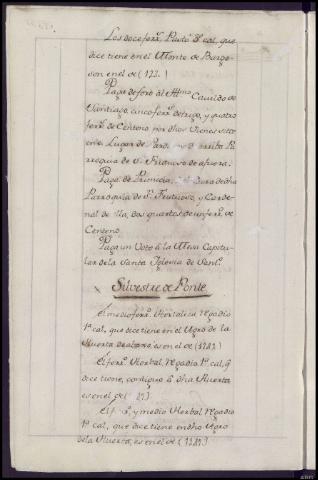 Los doce ferr.s Pasto 3.ª cal, que
dice tiene en el Monte de Burgo
son en el de (122.)
Paga de foro al Yltmo Cavildo de
Santiago, cinco ferr.s de trigo, y quatro
ferr.s de Centeno por dhos Vienes sitos
en el Lugar de arriba Pa
rroquia de S.n Fructuoso de afuera.
Paga de Primicia, al Cura de dha
Parroquia de S.n Fructuoso, y Carde
nal de ella, dos quartos de un ferr.o de
Centeno.
Paga un Voto á la Mesa Capitu
lar de la Santa Yglesia de Sant.o
Silvestre de Ponte
El medio ferr.o Hortaliza regadio
1.ª cal, que dice tiene en el Agro de la
Huerta de abajo, es en el de (1282)
El ferr.o Hortal, regadio 1.ª cal, q
dice tiene, contiguo á dha Huerta
es en el de
El ferr.o y medio Hortal regadio
1.ª cal, que dice tiene en dho Agro
de la Huerta, es en el de (1282)